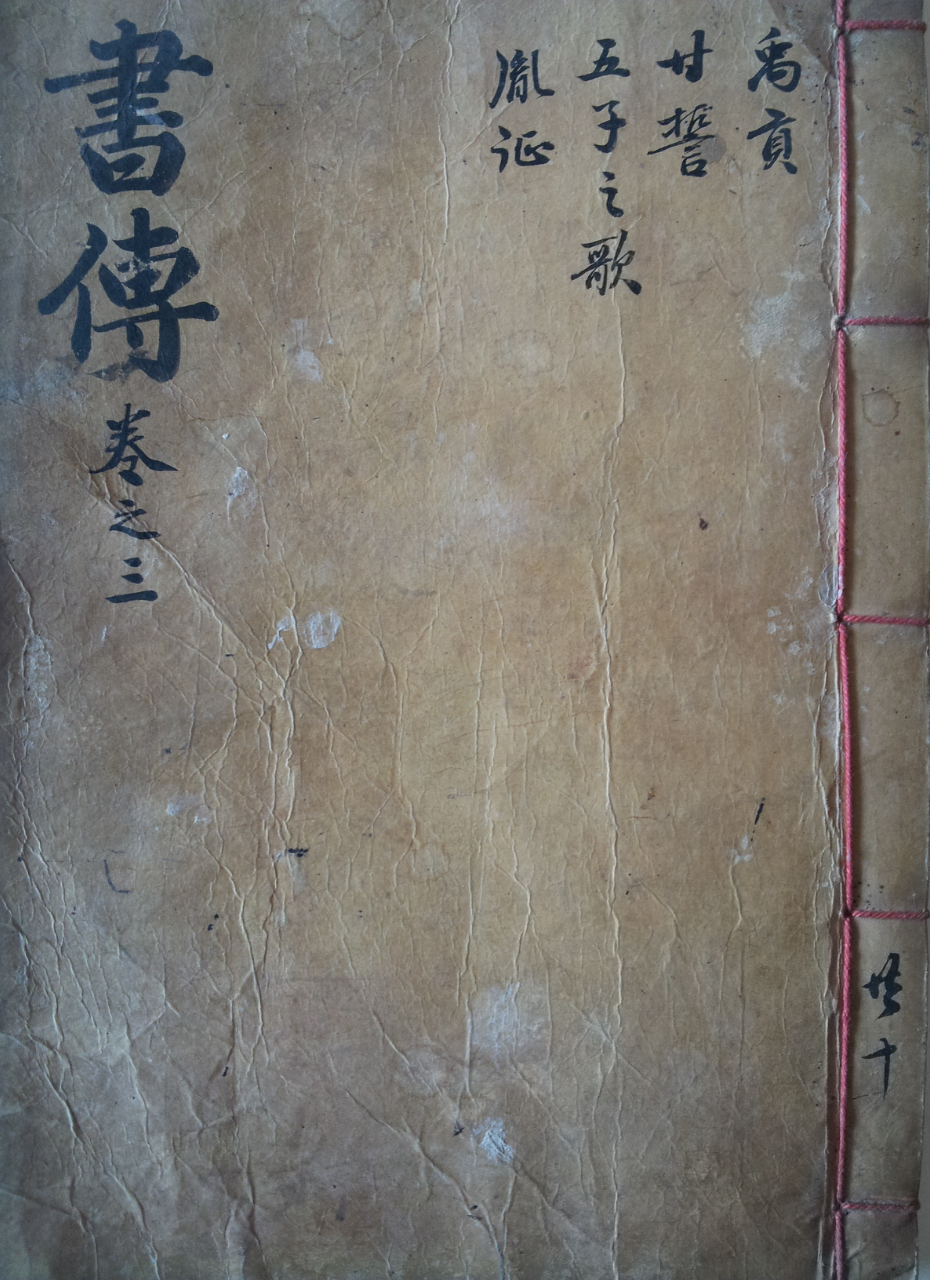 禹貢
甘誓
五子之歌
胤征
書傳
卷之三
共十